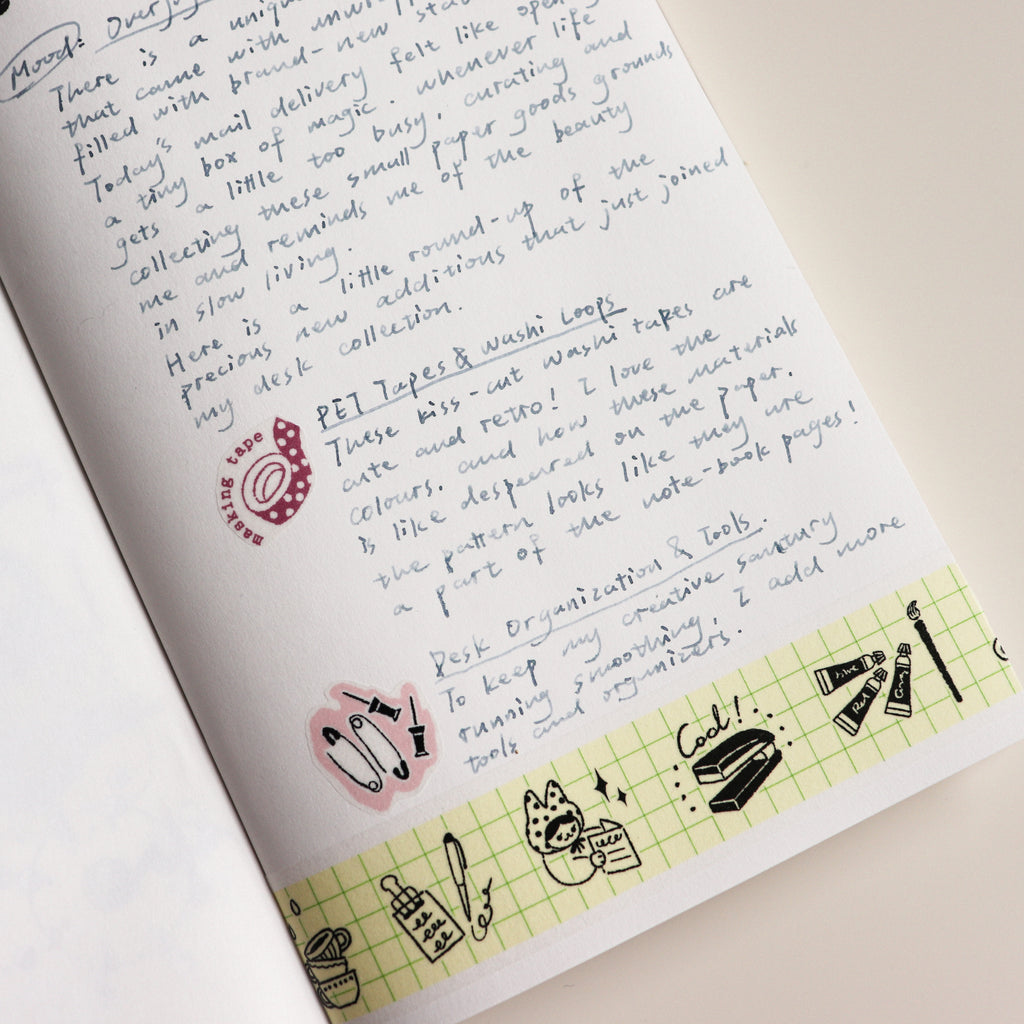 Mood: Overjoy
There is a unique
that came with
filled with brand-new
Today's mail delivery felt like
a tiny box of magic. whenever life
gets a little too busy, curating and
collecting these small paper goods grounds
me and reminds me of the beauty
in slow living.
Here is a little round-up of the
precious new additions that just joined
my desk collection.
PET Tapes & Washi Loops
These kiss-cut washi tapes are
cute and retro! I love the
colours. and how these materials
is like despeared on the paper.
the pattern looks like they are
a part of the note-book pages!
masking tape
Desk Organization & Tools.
To keep my creative santury
running smoothing, I add more
tools and organizers.
Cool!
Red